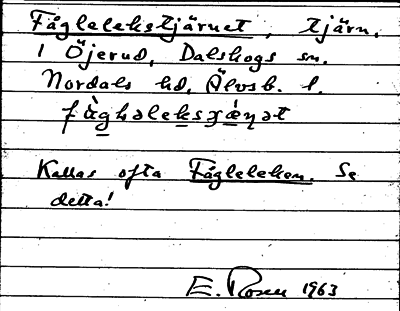 Fåglelekstjärnet, tjärn,
i Öjerud, Dalskogs sn.
Nordals hd, Älvsb. l.
Kallas ofta Fågleleken. Se
detta!
E. Rosen 1963